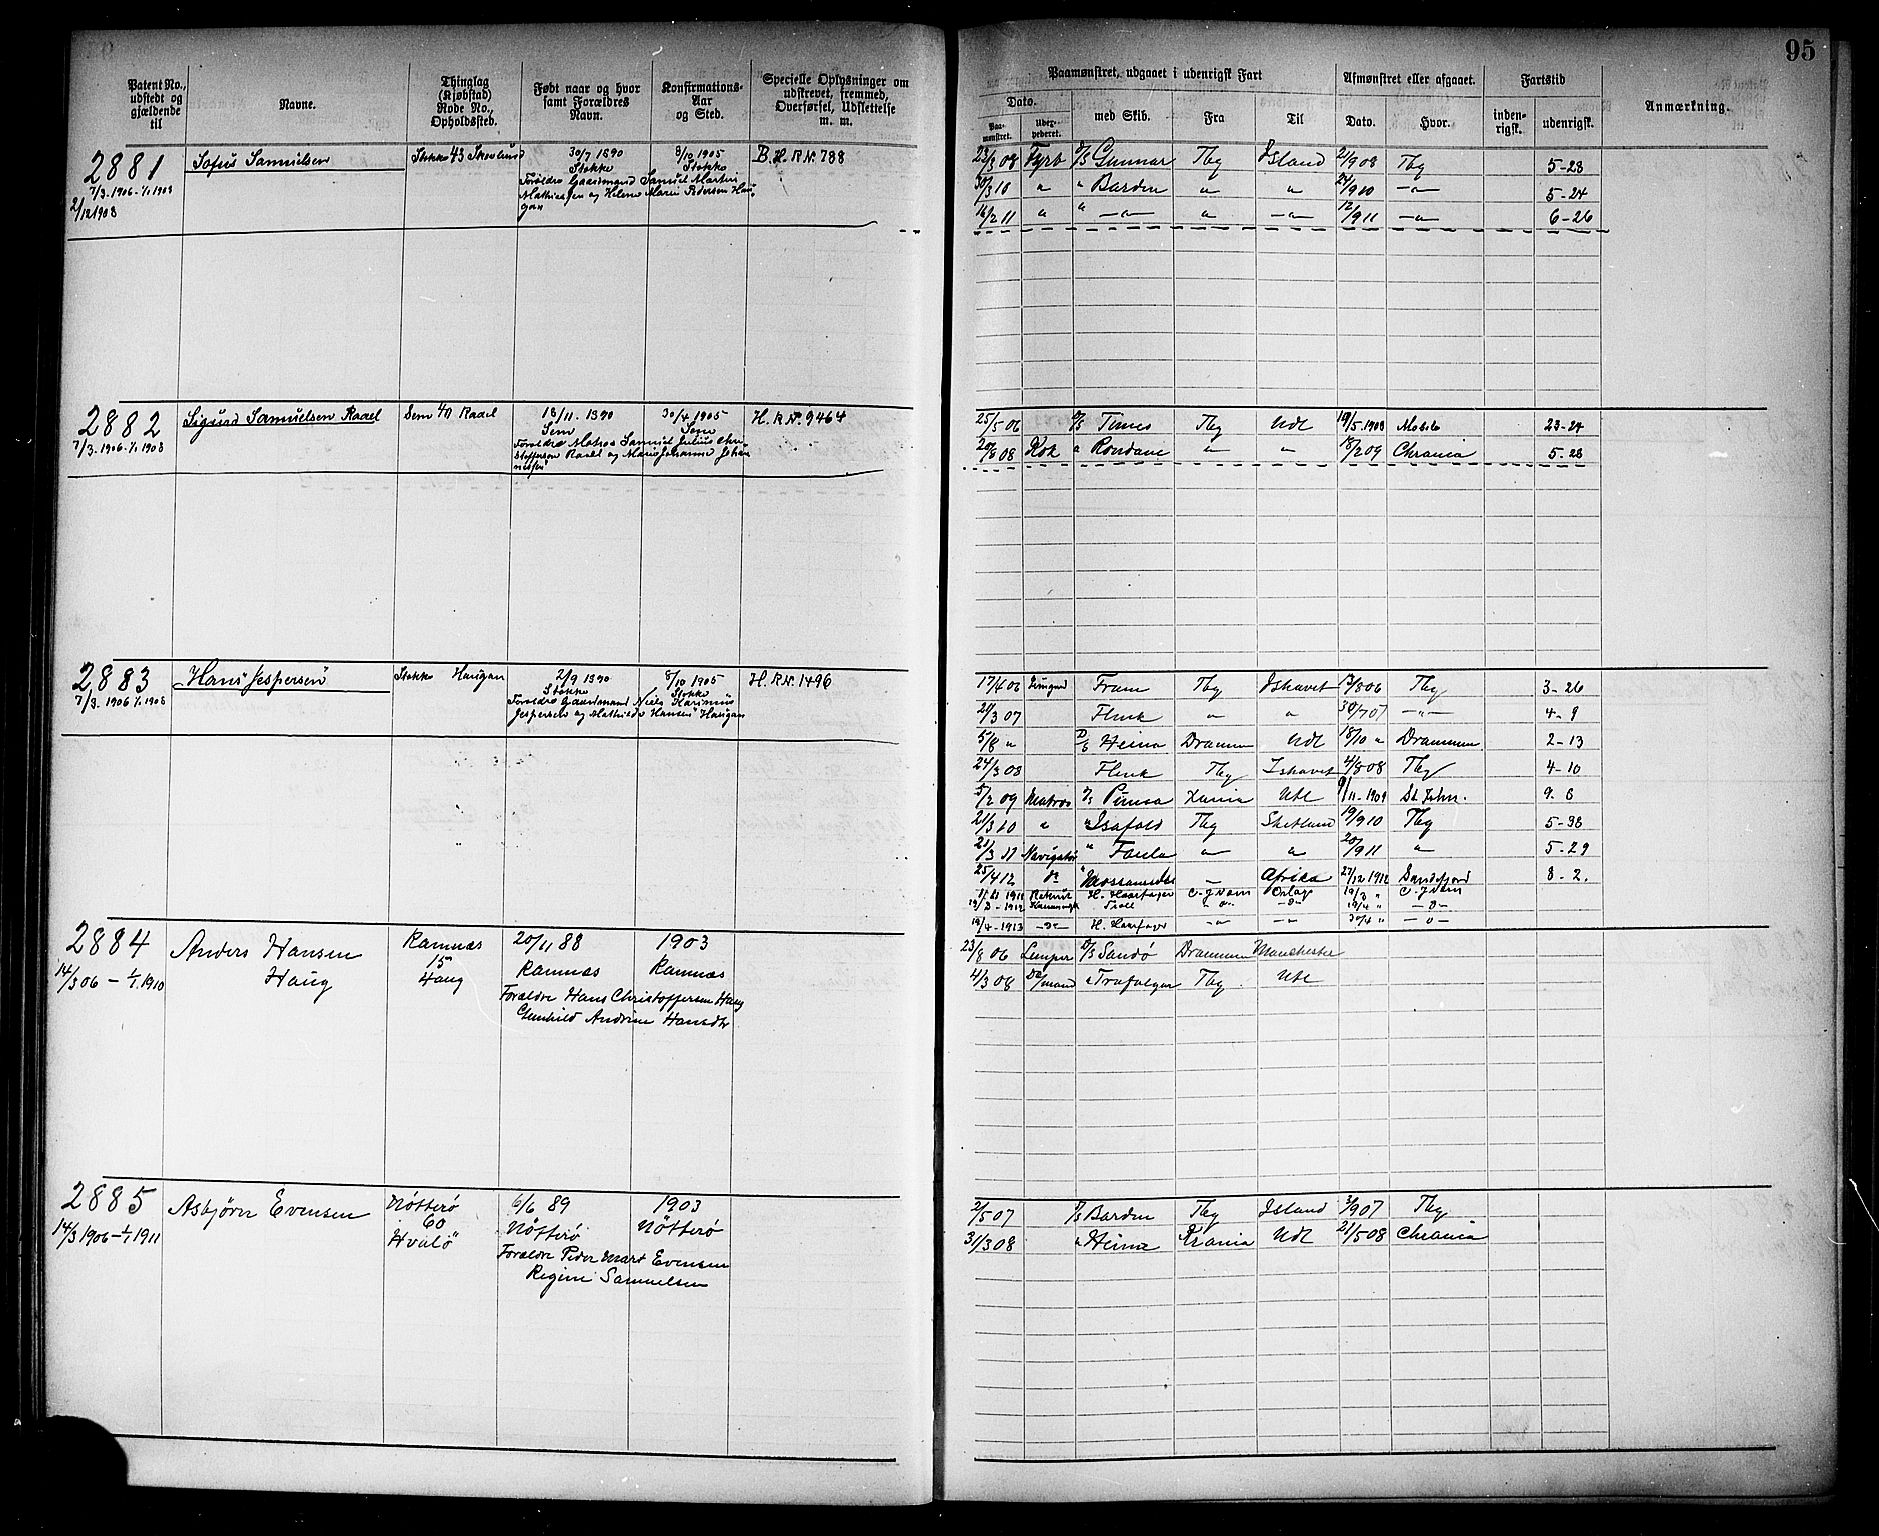 95
Patent No., udstedt og gjældende til
Navne.
Thinglag (Kjøbstad) Rode No., Opholdssteb.
Født naar og hvor samt Forældres Navn.
Konfirmations-Aar og Sted.
Specielle Oplysninger om udskrevet, fremmed, Overførsel, Udslettelse m. m.
Paamønstret, udgaaet i udenrigsk Fart
Afmønstret eller afgaaet.
Fartstid
Anmærkning.
Dato.
med Skib.
Fra
Til
Dato.
Hvor.
inden-rigsk.
udenrigsk.
Paa-mønstret.
2881 Sofus Samuelsen Stokke 43 30/7 1890 8/10 1905 B.H.R.Nº 788
7/3.1906-1/1 1908 Stokke Stokke
2/12 1908 Forældre Gaardmand Samuel Martin
Mathiassen og Helene Marie Pedersen Hau-
gan
23/3 08 Fyrb D/S Gunnar Tbg Island 21/9 08 Tbg 5-28
30/3 10 " " Barden " " 24/9 10 -"- 5-24
16/2 11 " " -"- " -"- 12/9 11 -"- 6-26
2882 Sigurd Samuelsen Raael Sem 40 Raael 18/11.1890 30/4 1905 H.R.Nº 9464
7/3.1906-1/1 1908 Sem Sem
Forældre Matros Samuel Julius Chri-
stoffersen Raael og Marie Johanne Johan-
nesen
25/5 06 D/S Times Tbg Udl 19/5.1908 Mobile 23-24
20/8 08 Kok " Rondane " " 18/2 09 Chrania 5-28
2883 Hans Jespersen Stokke Haugan 2/9 1890 8/10 1905 H.R.Nº 1496
7/3.1906 1/1.1908 Stokke Stokke
Forældre Gaardmand Niels Karinius
Jespersen og Mathilde Hansen Haugan
17/4 06 Fram Tbg Ishavet 13/8 06 Tbg 3-26
21/3 07 Flink " " 30/7 07 -"- 4-9
5/8 " D/S Heina Drammen Udl 18/10 " Drammen 2-13
24/3 08 Flink Tbg Ishavet 4/8 08 Tbg 4-10
5/2 09 Matros D/S Xania Utl 9/11-1909 St John. 9.6
21/3 10 " " Isafold Tbg Shetland 19/9 10 Tbg 5-38
21/3 11 Navigatør " Foula " " 20/9 11 " 5-29
25/4 12 Do - Afrika 27/12 1912 Sandefjord 8-2.
H. Haarfager
Troll
19/4-1913 -do- H. Haarfager -"- -"- 30/6 " -"-
2884 Anders Hansen Haug Ramnæs 15 Haug 20/11 88 1903
14/3 06 - 1/1.1910 Ramnæs Ramnæs
Forældre Hans Christoffersen Haug
Gunhild Andrine Hansdtr
23/8 06 Lemper D/S Sandø Drammen Manchester
4/3 08 Dk/mand " Trafalgar Tbg. Utl
2885 Asbjørn Evensen Nøtterø 60 Hvalø 6/6 89 1903
14/3 1906-1/1 1911 Nøtterø Nøtterø
Forældre Peder Mart Evensen
Regine Samuelsen
2/5 07 D/S Barden Tbg Island 3/9 07 Tbg
31/3 08 " Heina Krania Udl 21/5 08 Chrania